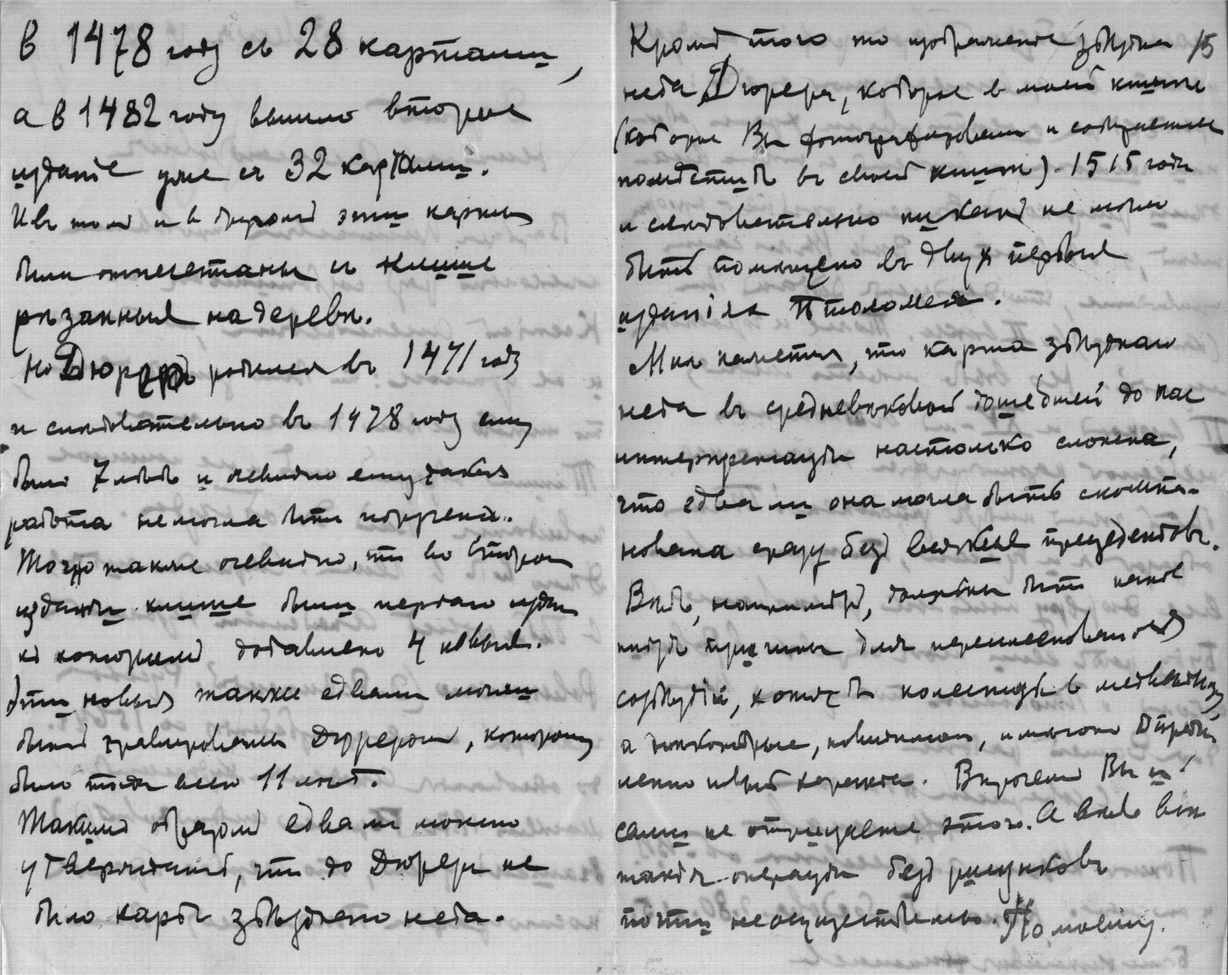 в 1478 году съ 28 картами,
а в 1482 году вышло второе
изданiе уже съ 32 картами.
И въ том и в другомъ эти карты
были отпечатаны съ клише
рѣзанныхъ на деревѣ.
Но Дюреръ родился въ 1471 году
и слѣдовательно въ 1478 году ему
было 7 лѣтъ и очевидно ему такая
работа не могла быть поручена.
Точно также очевидно, что во втором
издании клише были первого издан
къ которымъ добавлено 4 новыхъ.
Эти новыя также едва ли могли
быть гравированы Дюрером, которому
было тогда всего 11 лѣтъ.
Такимъ образомъ едва ли можно
утверждать, что до Дюрера не
было картъ звѣзднаго неба.
Кромѣ того то изображенiе звѣзднаго 15
неба Дюрера, которое в моей книге
(которое Вы фотографировали и собираетесь
помѣстить въ своей книгѣ) - 1515 года
и слѣдовательно никакъ не могло
быть помѣщено въ двухъ первыхъ
изданiяхъ Птоломея.
Мнѣ кажется, что карта звѣзднаго
неба въ средневѣковой дошедшей до нас
интерпретации настолько сложена,
что едва ли она могла быть скомпа-
нована сразу безъ всякихъ прецедентовъ.
Вѣдь, напримѣръ, должны быть какiе
нибудь причины для переименованiя
созвѣздiй, хотя бъ колесницы в медвѣдицу,
а некоторые, повидимому, и много
имѣютъ. Впрочем Вы и
сами не отрицаете этого. А вѣдь всѣ
такiя операции безъ рисунковъ
почти неосуществимы. По моему.